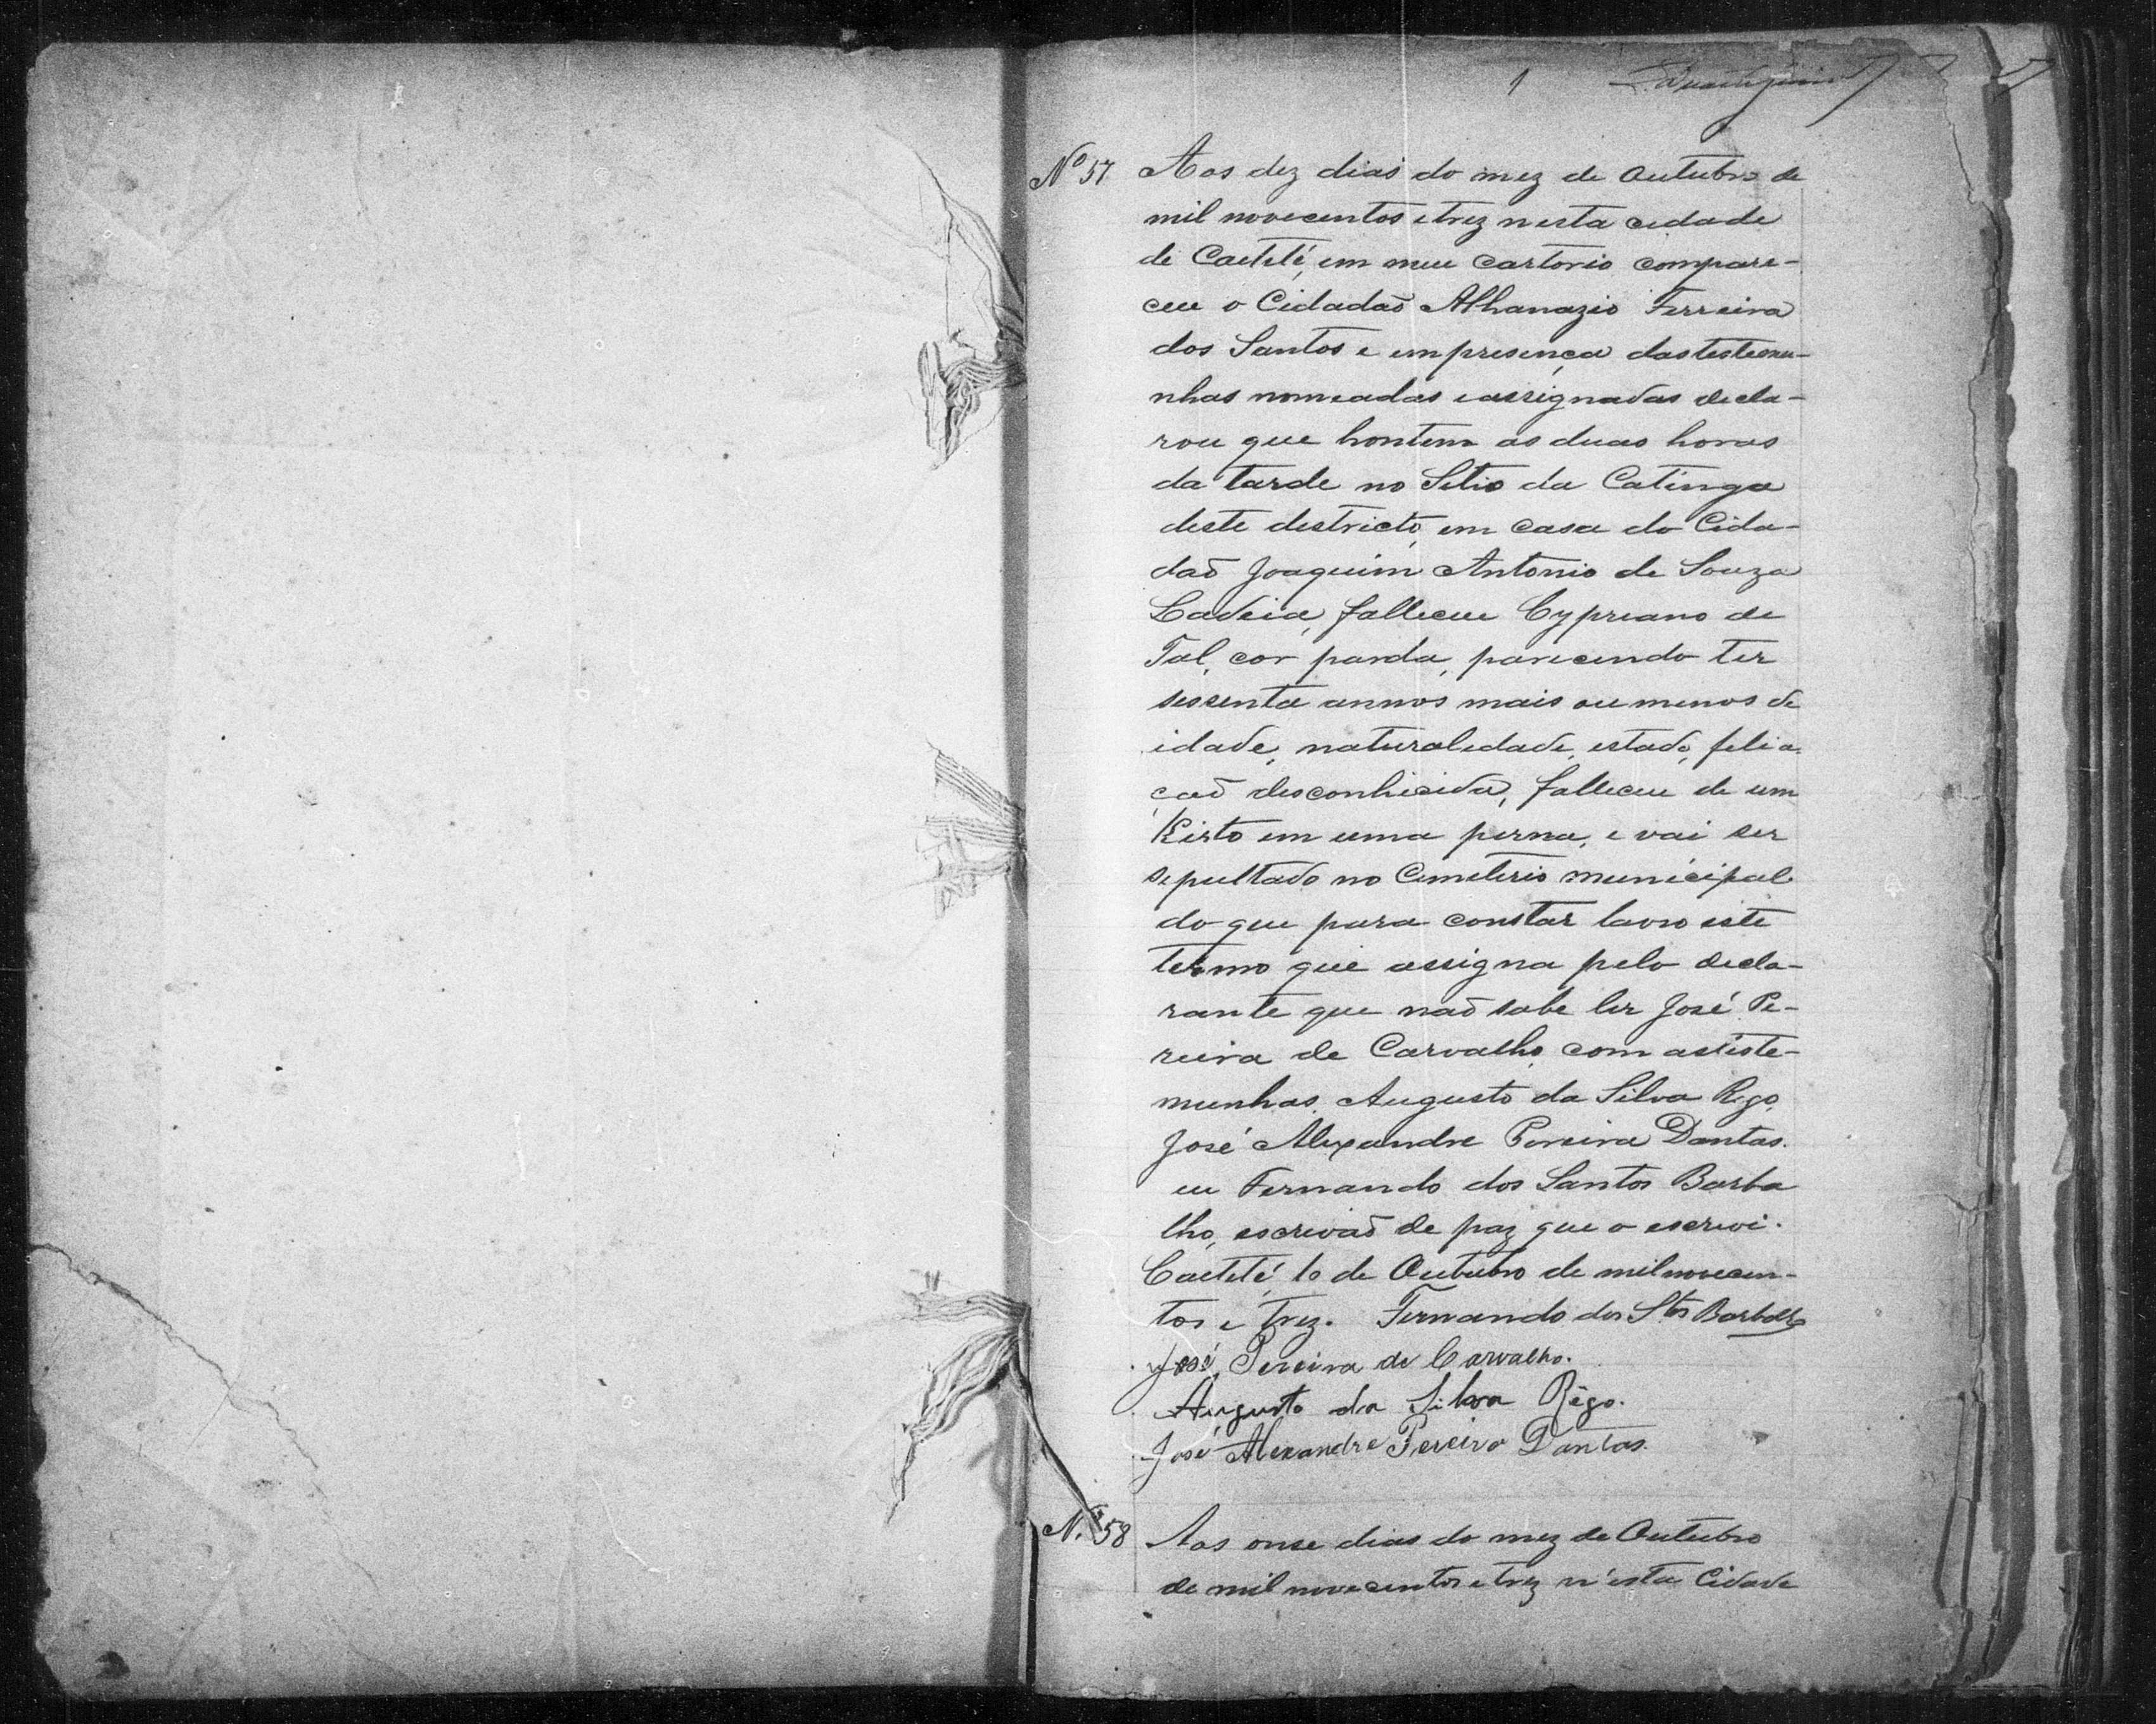 1
Nº 57 Aos dez dias do mez de Outubro de
mil novecentos e trez nesta cidade
de Caetité, em meu Cartorio compare-
ceu o Cidadaõ Athanazio Ferreira
dos Santos e em presença das testemu-
nhas nomeadas e assignadas decla-
rou que hontem as duas horas
da tarde no Sitio da Catinga
deste destricto, em casa do Cida-
daõ Joaquim Antonio de Souza
Ladeia, falleceu Cypreano de
Tal, cor parda, parecendo ter
sessenta annos mais ou menos de
idade, naturaledade, estado, felia-
çaõ desconhicida, falleceu de um
em uma perna, e vai ser
sepultado no Cemeterio municipal
do que para constar lavro este
termo que assigna pelo decla-
rante que naõ sabe ler José Pe-
reira de Carvalho, com as teste-
munhas, Augusto da Silva Rego,
José Alexandre Pereira Dantas.
eu Fernando dos Santos Barba
lho, escrivaõ de paz que o escrevi.
Caetité, 10 de Outubro de mil novecen-
tos e trez. Fernando dos Stos Barbalho
José Pereira de Carvalho.
Augusto da Silva Rêgo.
José Alexandre Pereira Dantas.
N.º 58 Aos onse dias do mez de Outubro
de mil novecentos e trez n'esta Cidade